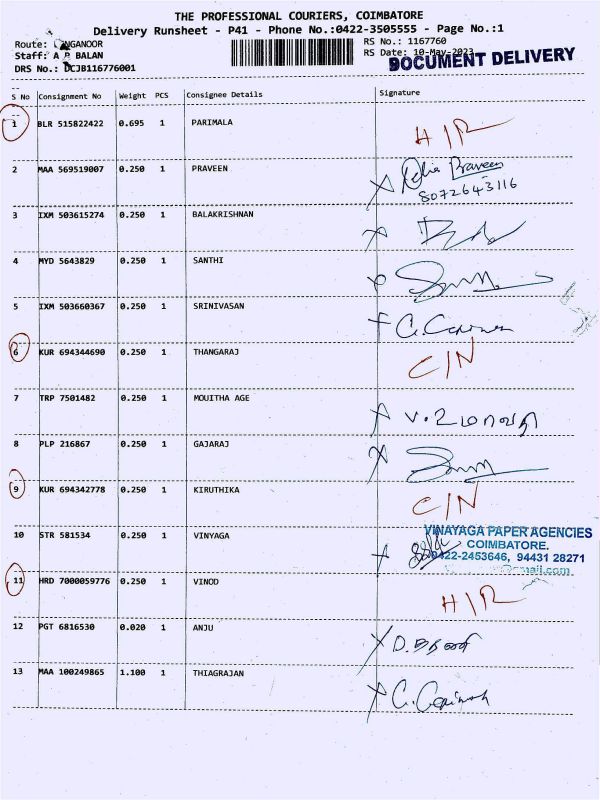 THE PROFESSIONAL COURIERS, COIMBATORE
Delivery Runsheet - P41 - Phone No.:0422-3505555 - Page No.:1
Route: NGANOOR
RS No.: 1167760
Staff: A P BALAN
RS Date: 10-May-2023
DOCUMENT DELIVERY
DRS No.: DCJB116776001
S No Consignment No Weight PCS Consignee Details Signature
1 BLR 515822422 0.695 1 PARIMALA H/R
2 MAA 569519007 0.250 1 PRAVEEN Praveen
8072643116
3 IXM 503615274 0.250 1 BALAKRISHNAN
4 MYD 5643829 0.250 1 SANTHI
5 IXM 503660367 0.250 1 SRINIVASAN
6 KUR 694344690 0.250 1 THANGARAJ C/N
7 TRP 7501482 0.250 1 MOUITHA AGE
8 PLP 216867 0.250 1 GAJARAJ
9 KUR 694342778 0.250 1 KIRUTHIKA C/N
10 STR 581534 0.250 1 VINYAGA VINAYAGA PAPER AGENCIES
COIMBATORE.
0422-2453646, 94431 28271
11 HRD 7000059776 0.250 1 VINOD H/R
12 PGT 6816530 0.020 1 ANJU
13 MAA 100249865 1.100 1 THIAGRAJAN